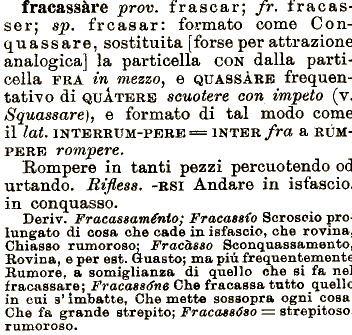 fracassàre prov. frascar; fr. fracas-
ser; sp. frcasar: formato come Con-
quassare, sostituita [forse per attrazione
analogica] la particella CON dalla parti-
cella FRA in mezzo, e QUASSÀRE frequen-
tativo di QUÀTERE scuotere con impeto (v.
Squassare), e formato di tal modo come
il lat. INTERRUM-PERE = INTER fra a RÙM-
PERE rompere.
Rompere in tanti pezzi percuotendo od
urtando. Rifless. -RSI Andare in isfascio.
in conquasso.
Deriv. Fracassaménto; Fracassío Scroscio pro-
lungato di cosa che cade in isfascio, che rovina,
Chiasso rumoroso; Fracàsso Sconquassamento,
Rovina, e per est. Guasto; ma piú frequentemente
Rumore, a somiglianza di quello che si fa nel
fracassare; Fracassóne Che fracassa tutto quello
in cui s'imbatte, Che mette sossopra ogni cosa
Che fa grande strepito; Fracassóso = strepitoso
rumoroso.